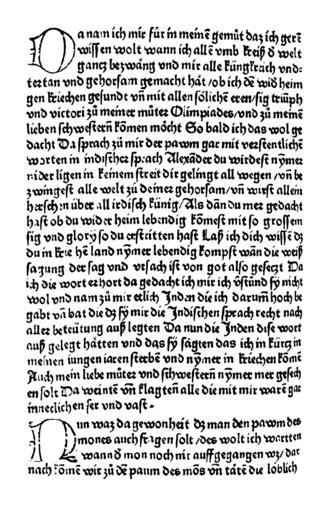 Da nam ich mir für in meinē gemüt daz ich gerē
wissen wolt wann ich allē vmb kreiß ď welt
gancz bezwūg vnd mir alle küngkräch vnd-
tertan vnd gehorsam gemacht hät/ob ich dē wid̄ heim
gen kriechen gesundt vn̄ mit allen sölichē eren/sig triūph
vnd victori zu meiner müter Olimpiades/vnd zu meinē
lieben schwestern kömen möcht So bald ich das wol ge
dacht Da sprach zů mir der pawn gar mit verstentliche
worten in indischer sprach Alexader du wirdest nymer
nider ligen in keinem streit dir gelingt all wegen/vn̄ be
zwingest alle welt zu deiner gehorsam/vn̄ wirst allein
herschen über all irdisch künig/Als dān du mer gedacht
hast ob du wider heim lebendig kömest mit so grossem
sig vnd glory so du erstritten hast Laß ich dich wissen dz
du in kriechē land nymer lebendig kompst wān die weiß
sagung der sag vnd vrsach ist von got also gesetzt Da
ich die wort erhort da gedacht ich mir ich v̈stūnd sy nicht
wol vnd nam zů mir etlich Inden die ich darum̄ hoch be
gabt vn̄ bat die dz sy mir die Indischen sprach recht nach
aller beteütung auß legten Da nun die Inden dise wort
auß gelegt hätten vnd das sy sagten das ich in kürtz in
meinen iungen iaren sterben vnd nymer in kriechen kömē
Auch mein liebe müter vnd schwestern nymer mer gesech
en solt Da weintē vn̄ klagten alle die mit mir warē gar
inneclichen ser vnd vast-
Nun waz da gewonheit dz man den pawm des
mones auch fragen solt/des wolt ich wartten
wann ď mon noch nit auffgegangen wz/dar
nach kömē wir zů dē paum des mōs vn̄ tätē die löblich